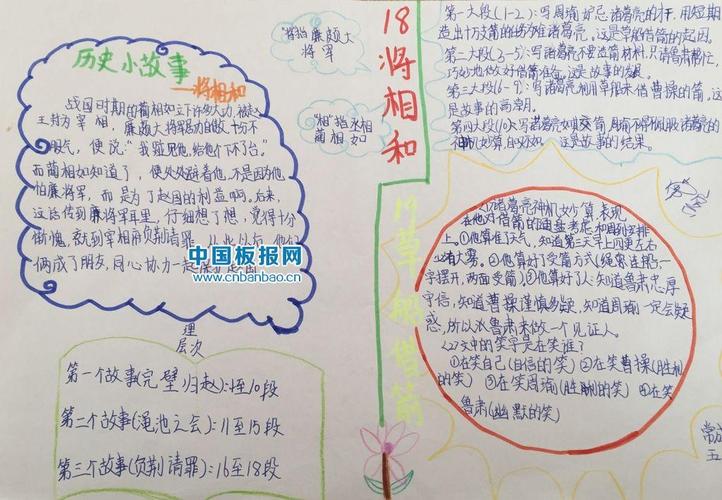 历史小故事
——将相和
战国时期的蔺相如立下许多大功,被赵
王封为宰相,廉颇大将军感到做十分不
服气,便说:“我碰见他,给他个下不了台。”
而蔺相如知道了,便处处避着他,不是因为他
怕廉将军,而是为了赵国的利益啊。后来,
这话传到廉将军耳里,仔细想了想,觉得十分
惭愧,就到宰相府负荆请罪,从此以后,他们
俩成了朋友,同心协力一起保护赵国
中国板报网
www.cnbanbao.cn
“将”指廉颇大
将军
“相”指丞相
蔺相如
18将相和
17草船借箭
理
层次
第一个故事(完璧归赵):1至10段
第二个故事(渑池之会):11至15段
第三个故事(负荆请罪):16至18段
第一大段(1-2):写周瑜妒忌诸葛亮的才干,用短期
造出十万箭的任务难诸葛亮,这是草船借箭的起因。
第二大段(3-5):写诸葛亮不要造箭材料,只请鲁肃帮忙,
巧妙地做好借箭准备,这是故事的发展。
第三大段(6-9):写诸葛亮利用草船来借曹操的箭,这
是故事的高潮。
第四大段(10):写诸葛亮如期交箭,周瑜不得不佩服诸葛亮的
神机妙算,自叹不如,这是故事的结果。
<1>诸葛亮神机妙算,表现
在他对借箭的通盘考虑和周到安排
上。①他算准了天气,知道第三天早上四更左右
必有大雾。②他算好了受箭方式(绳索连船,一
字摆开,两面受箭)③他算好了人:知道鲁肃忠厚
守信,知道曹操谨慎多疑,知道周瑜一定会疑
惑,所以派鲁肃来做一个见证人。
<2>文中的笑字是在笑谁?
①在笑自己(自信的笑)②在笑曹操(胜利
的笑)③在笑周瑜(胜利的笑)④在笑
鲁肃(幽默的笑)
五